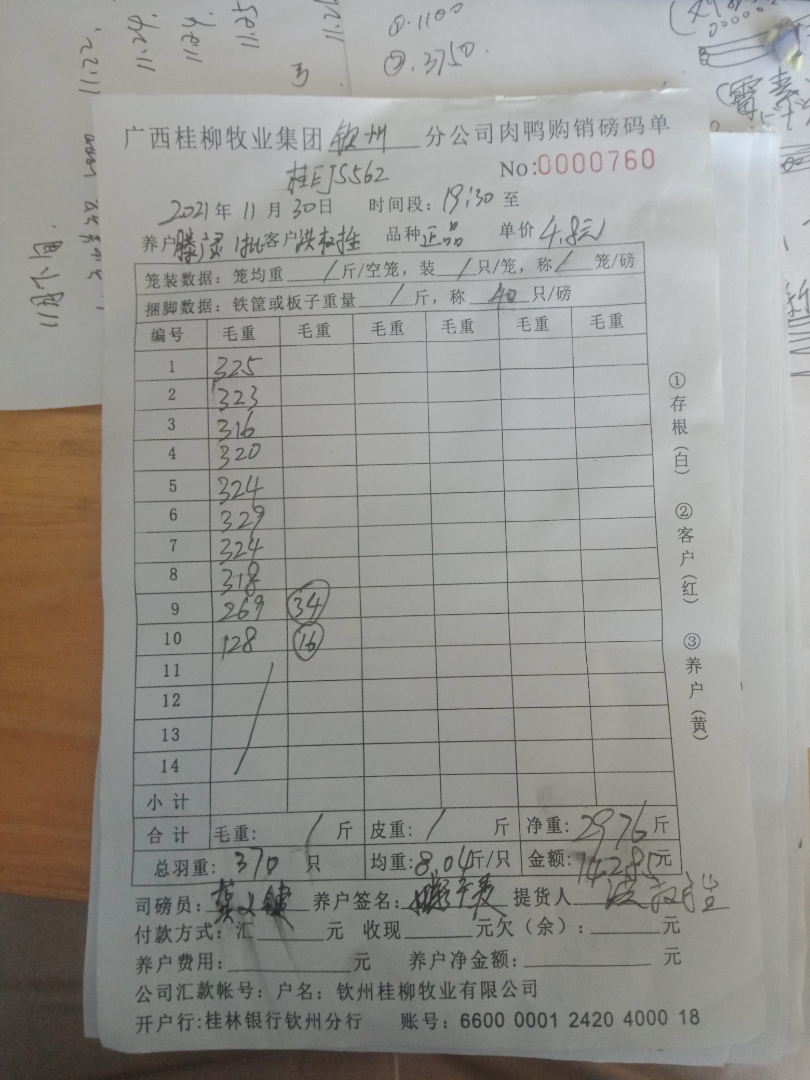 ①.1100
②.3750
广西桂柳牧业集团 钦州 分公司肉鸭购销磅码单
桂EJS562 No:0000760
2021年 11月 30日 时间段: 19:30 至
养户 1批 客户 品种 正品 单价 4.8元
笼装数据: 笼均重 / 斤/空笼, 装 / 只/笼, 称 / 笼/磅
捆脚数据: 铁筐或板子重量 / 斤, 称 40 只/磅
编号 毛重 毛重 毛重 毛重 毛重 毛重
1 325
2 323
3 316
4 320
5 324
6 329
7 324
8 318
9 269 34
10 128 16
11
12
13
14
小计
合计 毛重: / 斤 皮重: / 斤 净重: 2976 斤
总羽重: 370 只 均重: 8.04 斤/只 金额: 14285 元
司磅员: 养户签名: 提货人
付款方式: 汇 元 收现 元欠(余): 元
养户费用: 元 养户净金额: 元
公司汇款帐号: 户名: 钦州桂柳牧业有限公司
开户行:桂林银行钦州分行 账号: 6600 0001 2420 4000 18
①存根(白) ②客户(红) ③养户(黄)